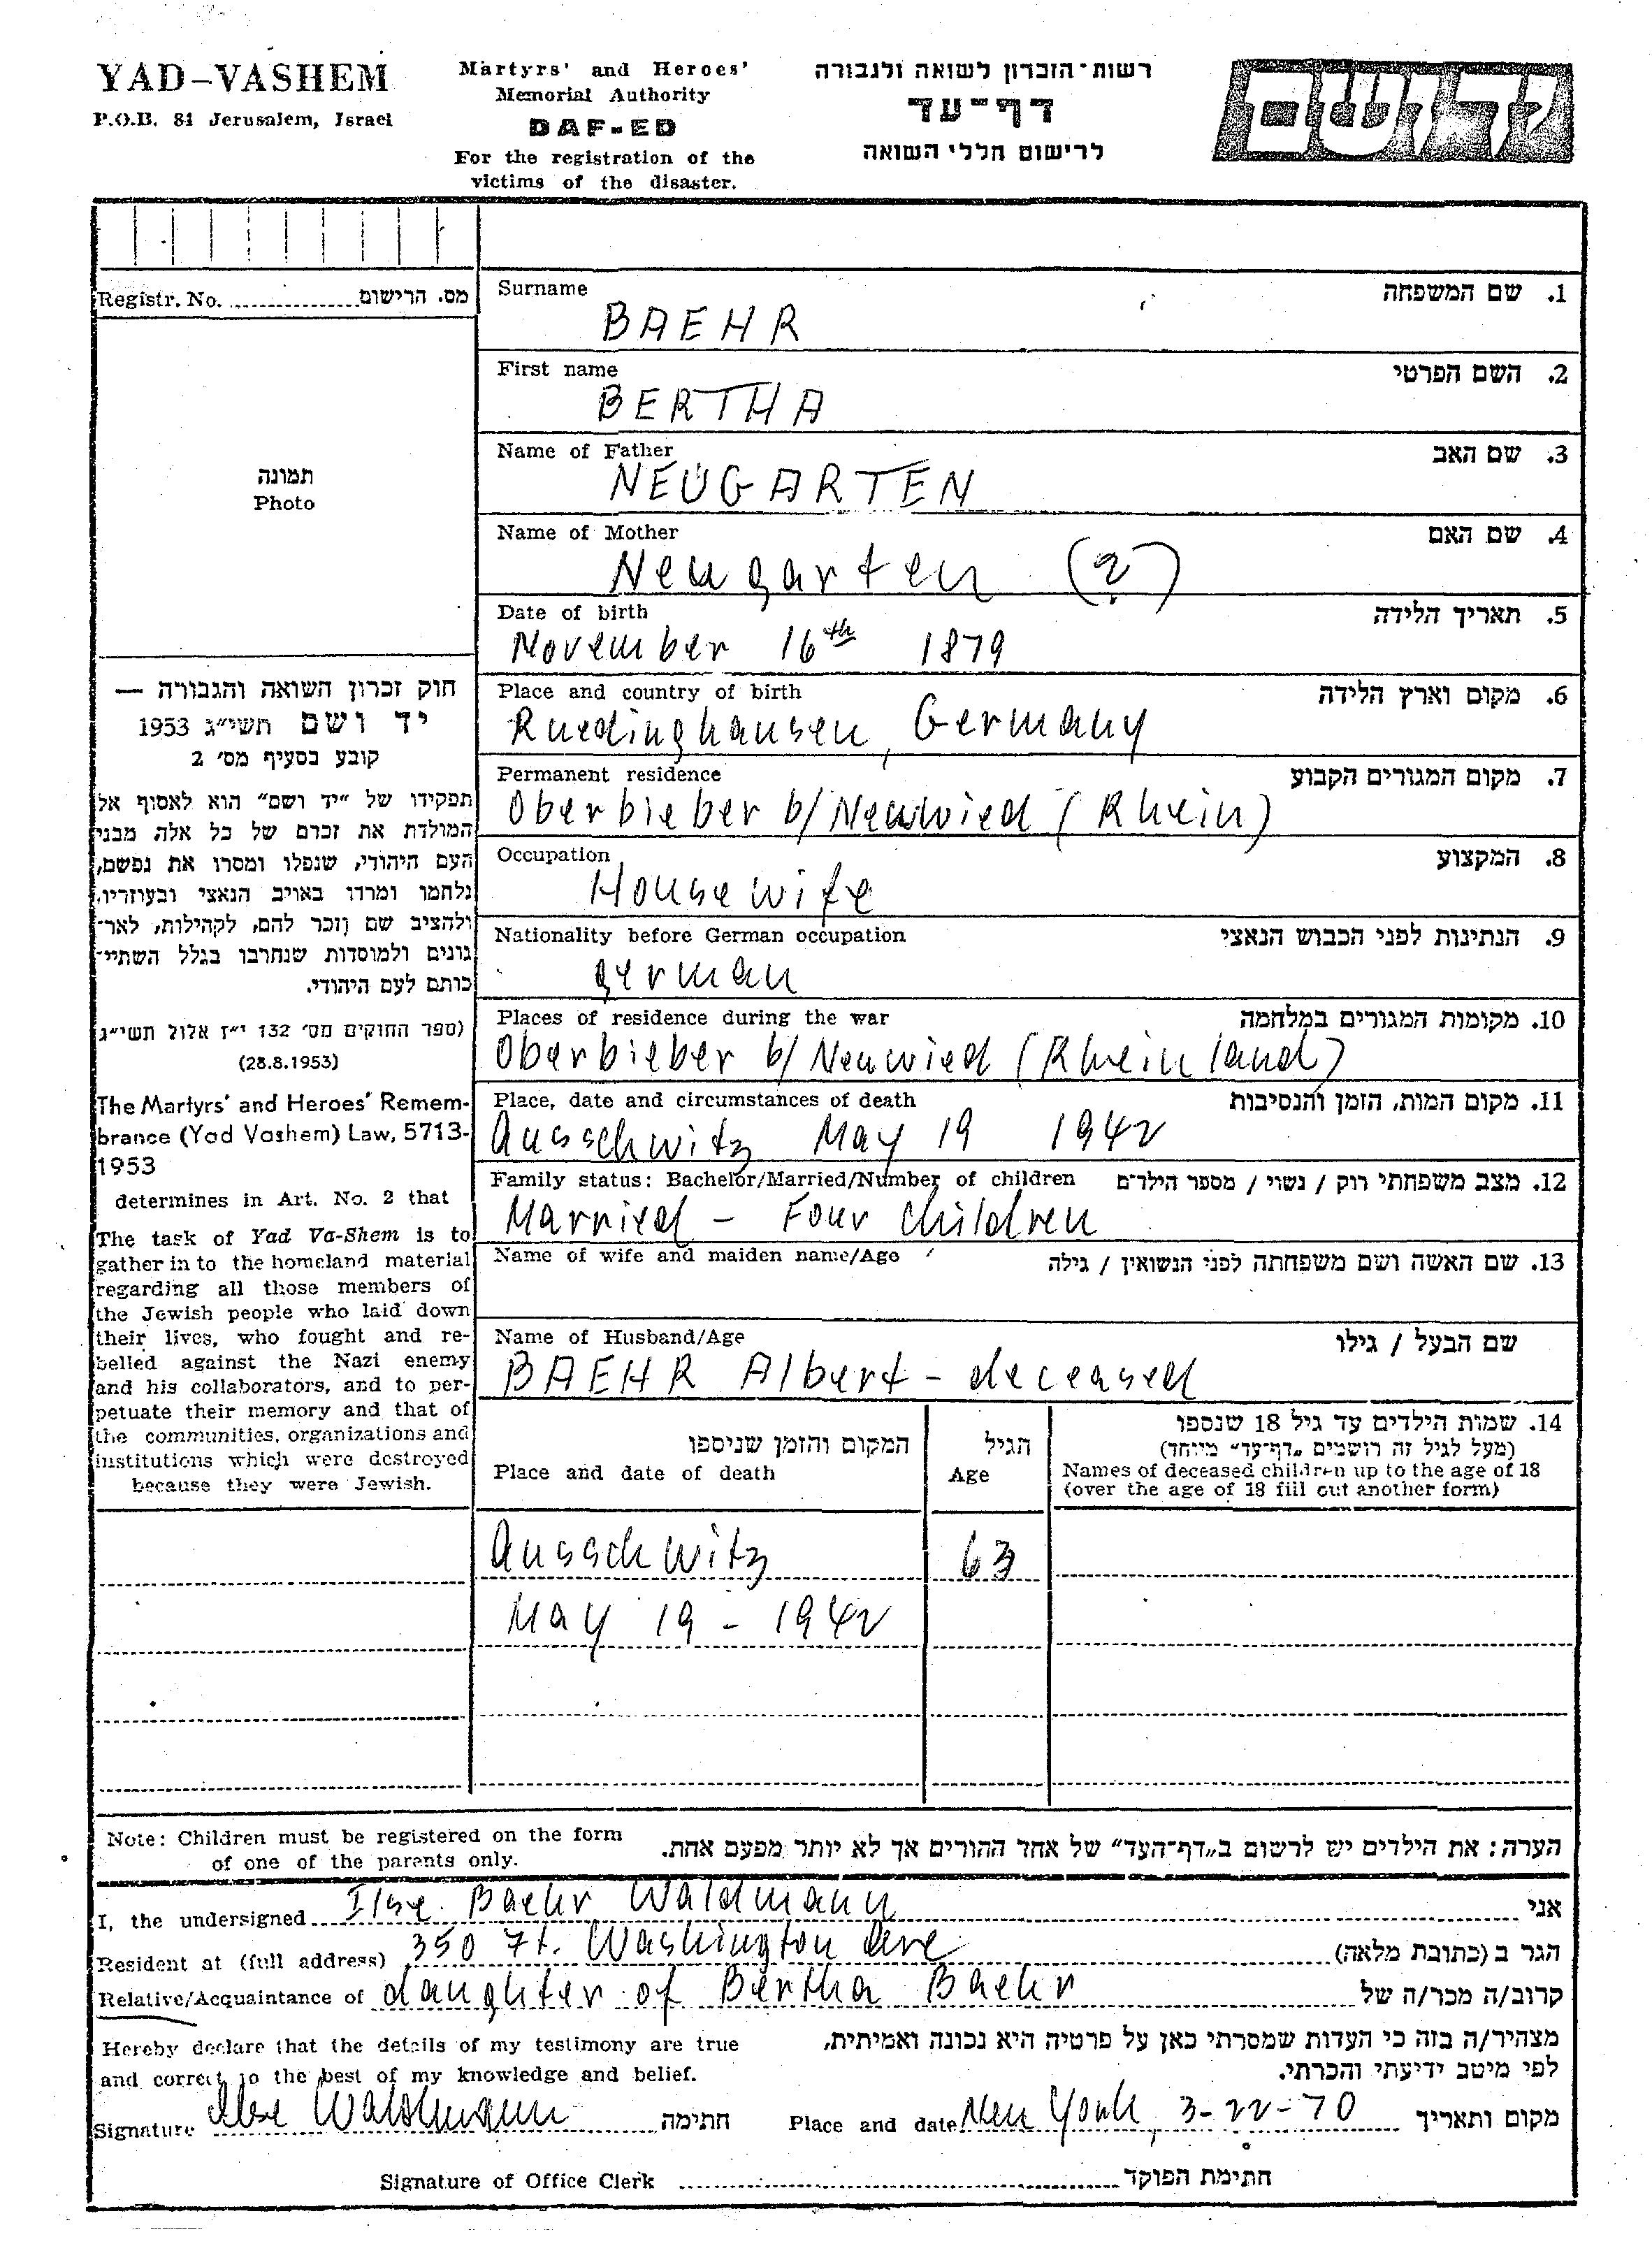 YAD-VASHEM
P.O.B. 84 Jerusalem, Israel
Martyrs' and Heroes'
Memorial Authority
DAF-ED
For the registration of the
victims of the disaster.
רשות-הזכרון לשואה ולגבורה
דף-עד
לרישום חללי השואה
יד ושם
Registr. No. מס. הרישום
תמונה
Photo
חוק זכרון השואה והגבורה —
יד ושם תשי״ג 1953
קובע בסעיף מס׳ 2
תפקידו של ״יד ושם״ הוא לאסוף אל
המולדת את זכרם של כל אלה מבני
העם היהודי, שנפלו ומסרו את נפשם,
נלחמו ומרדו באויב הנאצי ובעוזריו,
ולהציב שם וזכר להם, לקהילות, לאר־
גונים ולמוסדות שנחרבו בגלל השתיי־
כותם לעם היהודי.
(ספר החוקים מס׳ 132 י״ז אלול תשי״ג
(28.8.1953)
The Martyrs' and Heroes' Remem-
brance (Yad Vashem) Law, 5713-
1953
determines in Art. No. 2 that
The task of Yad Va-Shem is to
gather in to the homeland material
regarding all those members of
the Jewish people who laid down
their lives, who fought and re-
belled against the Nazi enemy
and his collaborators, and to per-
petuate their memory and that of
the communities, organizations and
institutions which were destroyed
because they were Jewish.
Surname 1. שם המשפחה
BAEHR
First name 2. השם הפרטי
BERTHA
Name of Father 3. שם האב
NEUGARTEN
Name of Mother 4. שם האם
Neugarten (?)
Date of birth 5. תאריך הלידה
November 16th 1879
Place and country of birth 6. מקום וארץ הלידה
Ruedinghausen, Germany
Permanent residence 7. מקום המגורים הקבוע
Oberbieber b/Neuwied (Rhein)
Occupation 8. המקצוע
Housewife
Nationality before German occupation 9. הנתינות לפני הכבוש הנאצי
german
Places of residence during the war 10. מקומות המגורים במלחמה
Oberbieber b/Neuwied (Rheinland)
Place, date and circumstances of death 11. מקום המות, הזמן והנסיבות
Ausschwitz May 19 1942
Family status: Bachelor/Married/Number of children 12. מצב משפחתי רוק / נשוי / מספר הילדים
Married - Four children
Name of wife and maiden name/Age 13. שם האשה ושם משפחתה לפני הנשואין / גילה
Name of Husband/Age שם הבעל / גילו
BAEHR Albert - deceased
המקום והזמן שניספו
Place and date of death
הגיל
Age
14. שמות הילדים עד גיל 18 שנספו
(מעל לגיל זה רושמים ״דף־עד״ מיוחד)
Names of deceased children up to the age of 18
(over the age of 18 fill out another form)
Ausschwitz 63
May 19 - 1942
Note: Children must be registered on the form
of one of the parents only.
הערה: את הילדים יש לרשום ב״דף־העד״ של אחד ההורים אך לא יותר מפעם אחת.
I, the undersigned Ilse Baehr Waldmann אני
Resident at (full address) 350 Ft. Washington Ave הגר ב (כתובת מלאה)
Relative/Acquaintance of daughter of Bertha Baehr קרוב/ה מכר/ה של
Hereby declare that the details of my testimony are true
and correct to the best of my knowledge and belief.
מצהיר/ה בזה כי העדות שמסרתי כאן על פרטיה היא נכונה ואמיתית,
לפי מיטב ידיעתי והכרתי.
Signature Ilse Waldmann חתימה Place and date New York, 3-22-70 מקום ותאריך
Signature of Office Clerk חתימת הפוקד